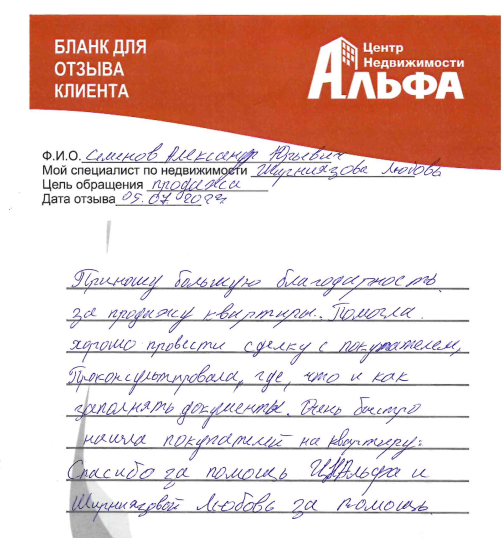 БЛАНК ДЛЯ
ОТЗЫВА
КЛИЕНТА
Центр
Недвижимости
АЛЬФА
Ф.И.О. Семенов Александр Юрьевич
Мой специалист по недвижимости Ширниязова Любовь
Цель обращения продажа
Дата отзыва 05.07.2024
Приношу большую благодарность
за продажу квартиры. Помогла
хорошо провести сделку с покупателем,
Проконсультировала, где, что и как
заполнять документы. Очень быстро
нашла покупателей на квартиру.
Спасибо за помощь ЦН Альфа и
Ширниязовой Любовь за помощь